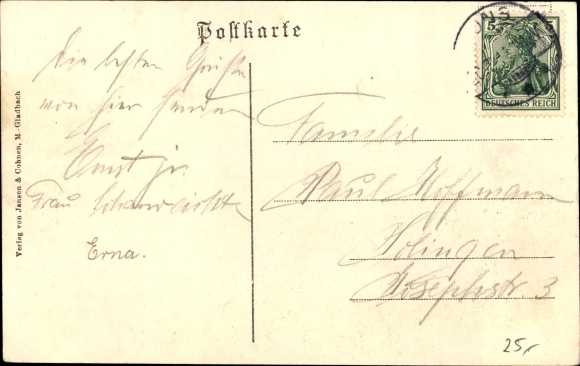 Postkarte
Die besten Grüße
von hier senden
Ernst jr.
Frau
Erna.
Familie
Paul Hoffmann
Solingen
Josephstr. 3
5
DEUTSCHES REICH
Verlag von Jansen & Cohnen, M.-Gladbach
25,